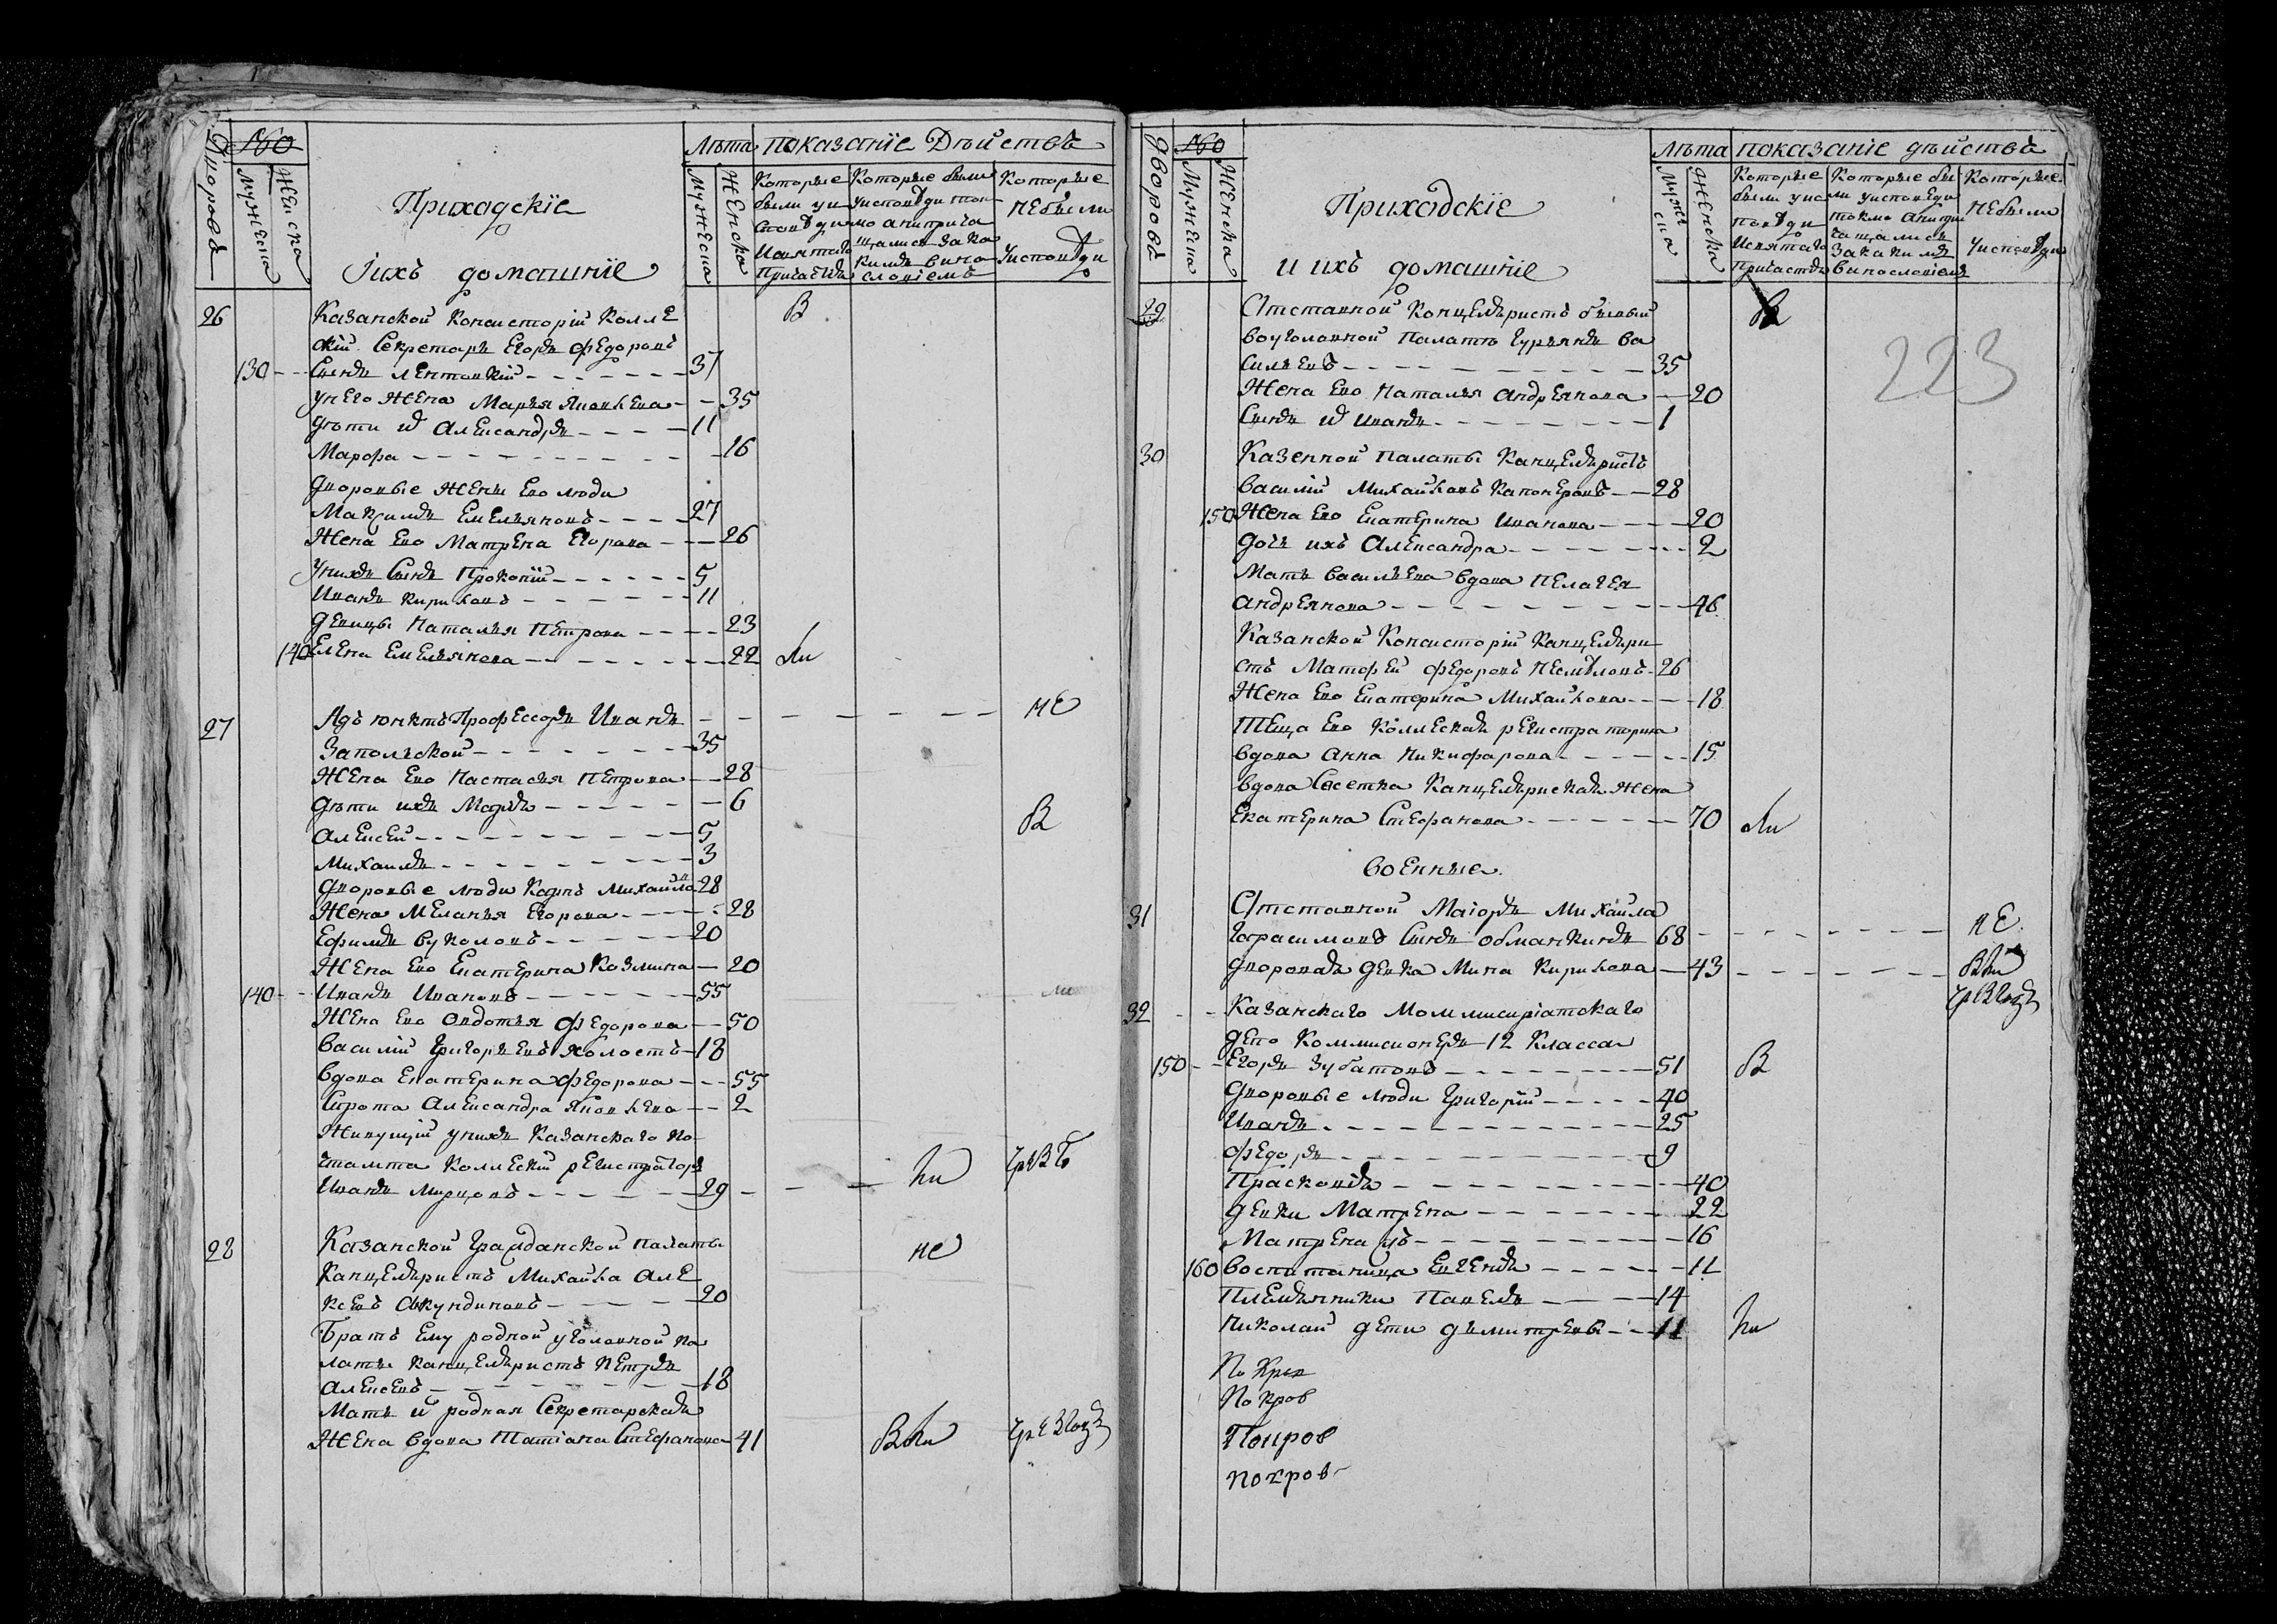 Дворовъ
№о
Мужеска
Женска
Приходскіе
Іихъ домашніе
Лѣта
Мужеска
Женска
показаніе Дѣйствъ
Которые
были уи
споведи
Исвятаго
Причастія
Которые были
уисповѣди ток
мо анеприча
щались зака
кимъ вино
словіемъ
Которые
Небыли
Уисповѣди
26
Казанской Консисторіи Колле
скій Секретарь Егоръ Федоровъ
130 Сынъ Лентовскій 37
унего Жена Марья Яковлева 35
дѣти и Александръ 11
Марфа 16
дворовые Жены Ево люди
Максимъ Емельяновъ 27
Жена Ево Матрена Егорова 26
Унихъ Сынъ Прокопій 5
Иванъ Кириловъ 11
девицы Наталья Петрова 23
140 Елена Емельянова 22
27
Адъюнктъ Професоръ Иванъ
Запольской 35
не
Жена Ево Настасья Петрова 28
дѣти ихъ Марья 6
Алексей 5
Михаилъ 3
дворовые люди Карпъ Михайло 28
Жена Меланья Егорова 28
Ефимъ Вуколовъ 20
Жена Ево Екатерина Козмина 20
140 Иванъ Ивановъ 55
Жена Ево Овдотья Федорова 50
Василій Григорьевъ холостъ 18
Вдова Екатерина Федорова 55
Сирота Александра Яковлева 2
Живущій унихъ Казанскаго по
чтамта Коллескій регистраторъ
Иванъ Мирцовъ 29
28
Казанской Гражданской Палаты
Канцеляристъ Михайла Але
ксевъ Фкундиновъ 20
не
Братъ Ему родной уголовной па
латы канцеляристъ Петръ
Алексевъ 18
Мать и родная Секретарская
Жена вдова Татіана Стефанова 41
Дворовъ
№о
Мужеска
Женска
Приходскіе
и ихъ домашніе
Лѣта
Мужеска
Женска
показаніе дѣйствъ
Которые
были уис
поведи
Исвятаго
Причастія
Которые бы
ли уисповеди
токмо анепри
чащались
Закакимъ
винословіемъ
Которые
Небыли
Уисповѣди
223
29
Отставной Концеляристъ бывый
Воуголовной Палатѣ Гурьянъ Ва
сильевъ 35
Жена Ево Наталья Андреянова 20
Сынъ и Иванъ 1
30
Казенной Палаты Канцеляристъ
Василій Михайловъ Капонеровъ 28
150 Жена Ево Екатерина Иванова 20
дочь ихъ Александра 2
Мать Васильева вдова Пелагея
Андреянова 46
Казанской Консисторіи Канцеляри
стъ Матфей Федоровъ Несмѣловъ 26
Жена Ево Екатерина Михайлова 18
Теща Ево Коллеская регистраторша
вдова Анна Никифарова 15
вдова Свсетка Канцелярская Жена
Екатерина Стефанова 70
Военные
31
Отставной Маіоръ Михайла
Гарасимовъ Сынъ Обманкинъ 68
не
дворовая девка Мина Кирилова 43
32
Казанскаго Моммисиріатскаго
депо Коммисионеръ 12 Класса
150 Егоръ Зубатовъ 51
В
дворовые люди Григорій 40
Иванъ 25
Федоръ 9
Прасковья 40
девки Матрена 22
Матрена 16
160 Воспитаница Евгенія 11
Племянники Павелъ 14
Николай дети дьмитревы 11
По Кров
Покров
Покров
покров